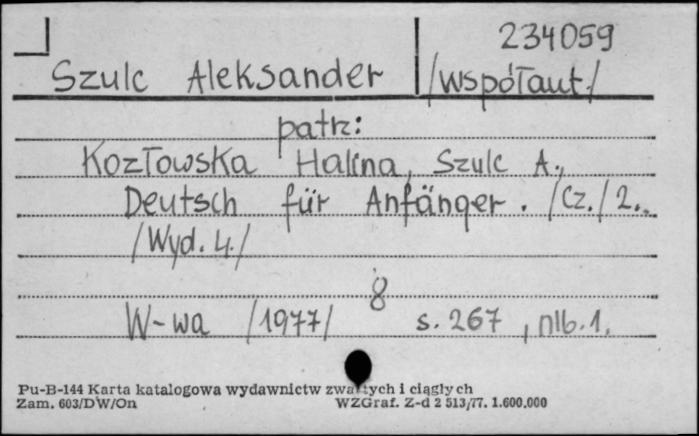 234059
Szulc Aleksander /współaut./
patrz:
Kozłowska Halina, Szulc A.,
Deutsch für Anfänger. /Cz./ 2.
/Wyd. 4./
8
W-wa /1977/ s. 267, nlb. 1.
Pu-B-144 Karta katalogowa wydawnictw zwartych i ciągłych
Zam. 603/DW/On WZGraf. Z-d 2 513/77. 1.600.000